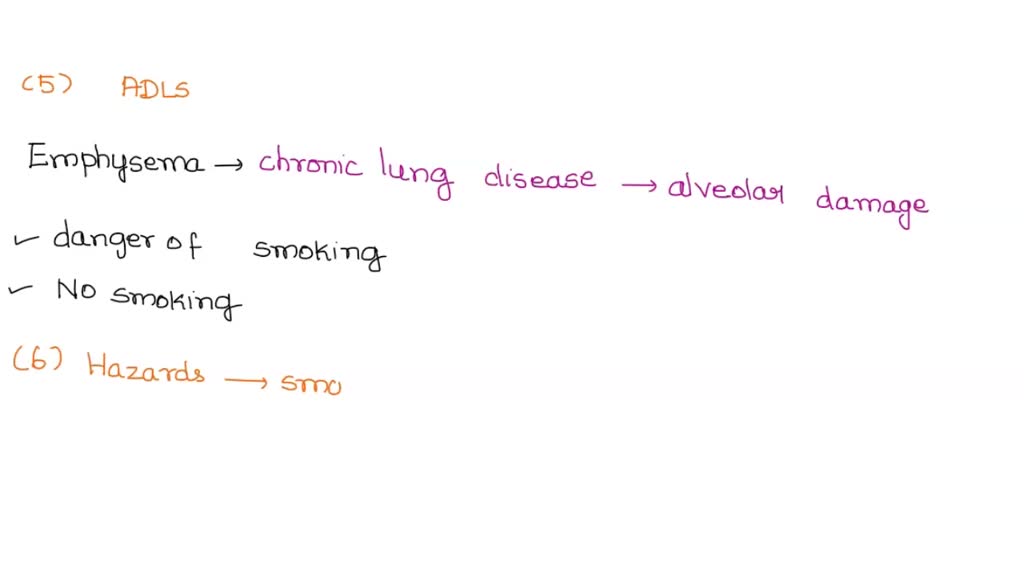 (5) ADLS
Emphysema → chronic lung disease → alveolar damage
✓ danger of smoking
✓ No smoking
(6) Hazards → smo